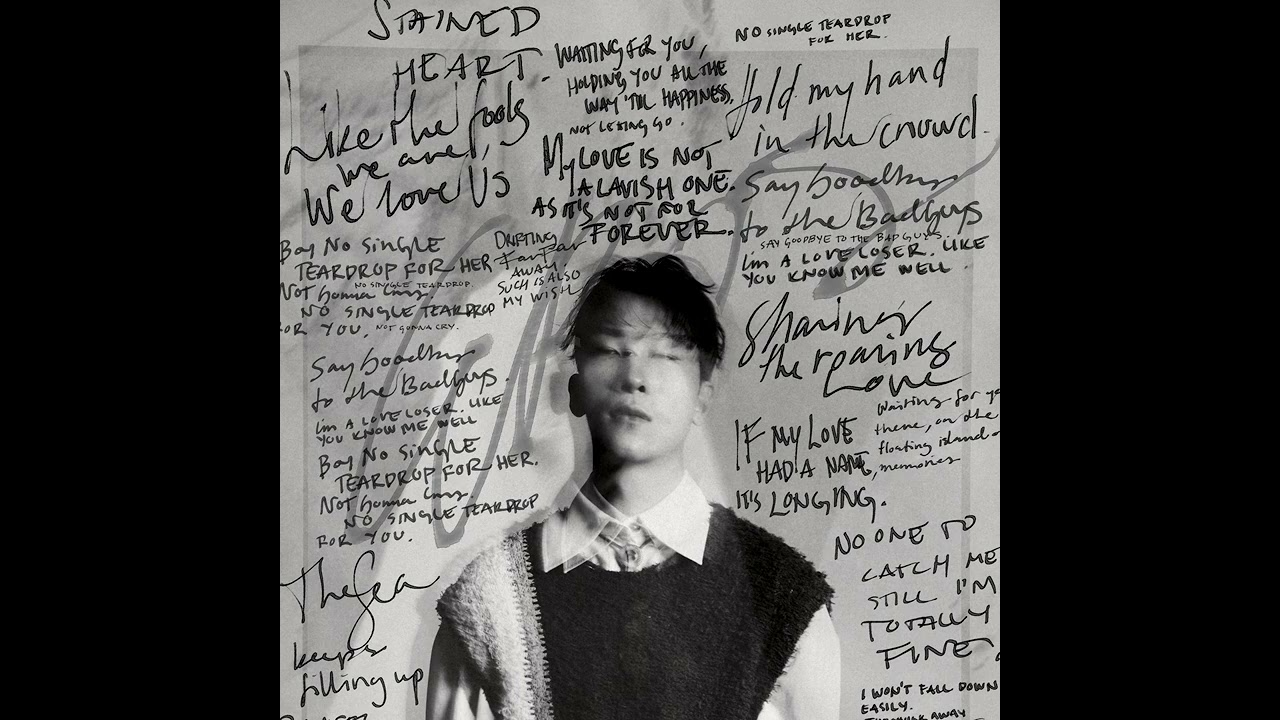 STAINED
HEART
Like the fools
we are,
We love Us
WAITING FOR YOU,
HOLDING YOU ALL THE
WAY 'TIL HAPPINESS.
NOT LETTING GO.
My LOVE IS NOT
A LAVISH ONE.
AS IT'S NOT FOR
FOREVER.
NO SINGLE TEARDROP
FOR HER.
Hold my hand
in the crowd.
Say Goodbye
to the BadGuys
SAY GOODBYE TO THE BAD GUYS.
I'm A LOVE LOSER. LIKE
YOU KNOW ME WELL.
Boy No SINGLE
TEARDROP FOR HER
NO SINGLE TEARDROP.
Not Gonna Cry.
NO SINGLE TEARDROP
FOR YOU. NOT GONNA CRY.
DRIFTING
Far Far
AWAY.
SUCH IS ALSO
MY WISH
Say Goodbye
to the BadGuys.
I'm A LOVE LOSER. LIKE
YOU KNOW ME WELL
Boy No SINGLE
TEARDROP FOR HER.
Not Gonna Cry.
NO SINGLE TEARDROP
FOR YOU.
The Sea
keeps
filling up
Sharing
the roaring
Love
IF MY LOVE
HAD A NAME,
IT'S LONGING.
Waiting for
there, on the
floating island
memories
NO ONE TO
CATCH ME
STILL I'M
TOTALLY
FINE
I WON'T FALL DOWN
EASILY.
AWAY